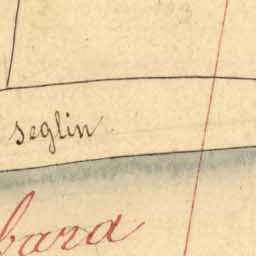 seglin
bara